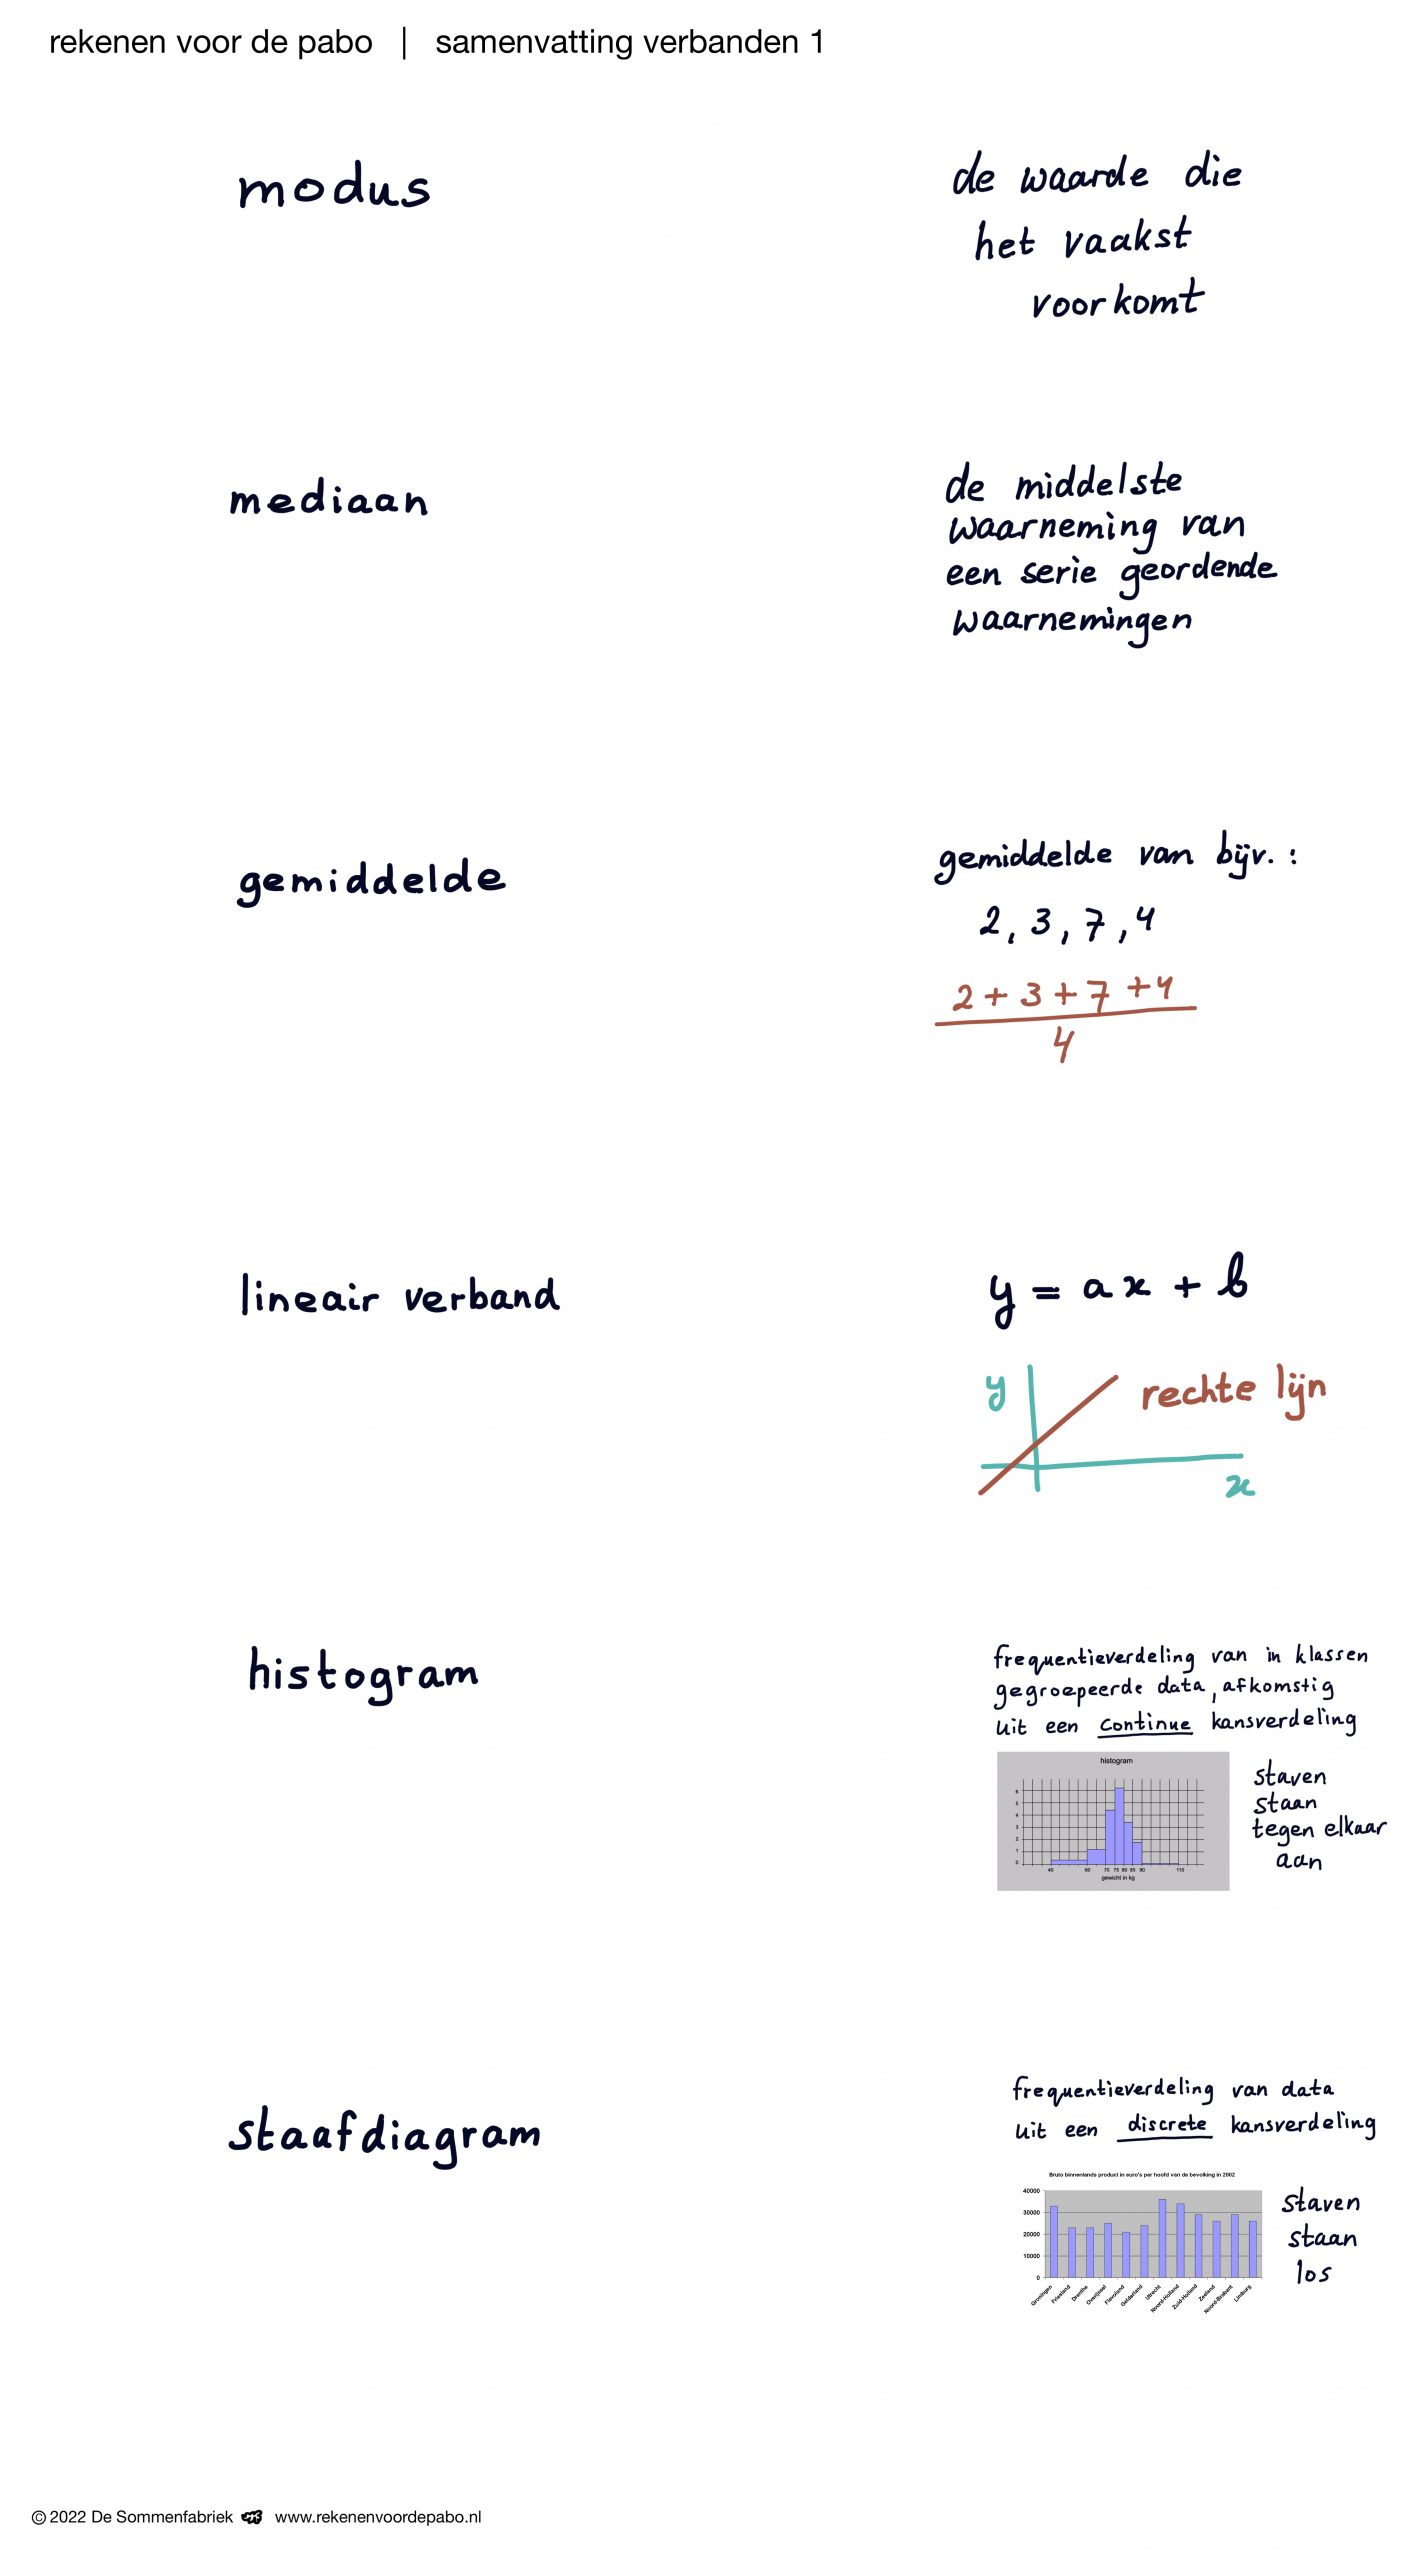 rekenen voor de pabo | samenvatting verbanden 1
modus
de waarde die
het vaakst
voorkomt
mediaan
de middelste
waarneming van
een serie geordende
waarnemingen
gemiddelde
gemiddelde van bijv. :
2, 3, 7, 4
2 + 3 + 7 + 4
4
lineair verband
y = ax + b
y
rechte lijn
x
histogram
frequentieverdeling van in klassen
gegroepeerde data, afkomstig
uit een continue kansverdeling
histogram
6
5
4
3
2
1
0
40 60 70 75 80 85 90 110
gewicht in kg
staven
staan
tegen elkaar
aan
staafdiagram
frequentieverdeling van data
uit een discrete kansverdeling
Bruto binnenlands product in euro's per hoofd van de bevolking in 2002
40000
30000
20000
10000
0
Groningen Friesland Drenthe Overijssel Flevoland Gelderland Utrecht Noord-Holland Zuid-Holland Zeeland Noord-Brabant Limburg
staven
staan
los
© 2022 De Sommenfabriek www.rekenenvoordepabo.nl